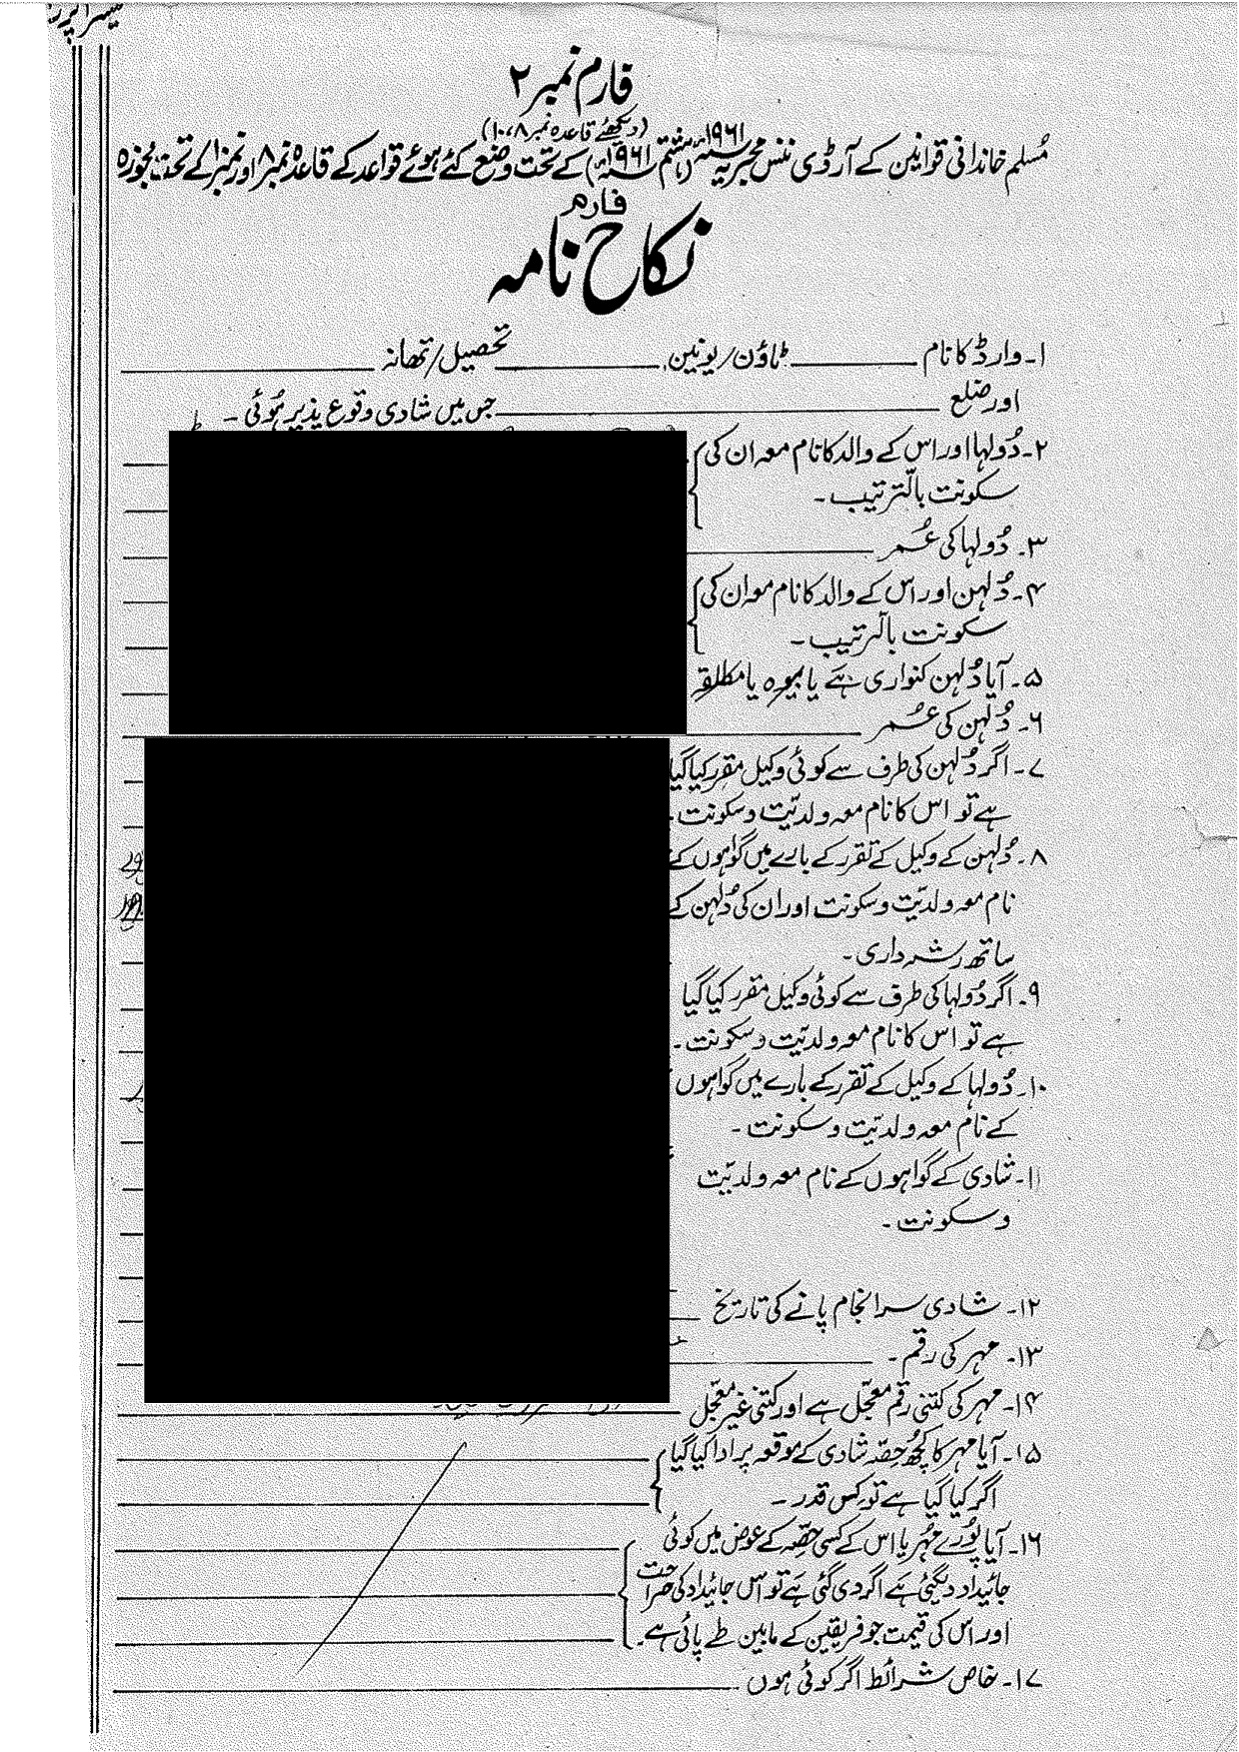 فارم نمبر ۲
(دیکھئے قاعدہ نمبر ۸، ۱۰)
مُسلم خاندانی قوانین کے آرڈی ننس مجریہ سنہ ۱۹۶۱ (ہشتم سنہ ۱۹۶۱ء) کے تحت وضع کئے ہوئے قواعد کے قاعدہ نمبر ۸ اور نمبر ۱۰ کے تحت مجوزہ
فارم
نکاح نامہ
۱۔ وارڈ کا نام ٹاؤن/یونین تحصیل/تھانہ
اور ضلع جس میں شادی وقوع پذیر ہُوئی ۔
۲۔ دُولہا اور اس کے والد کا نام معہ ان کی
سکونت بالترتیب ۔
۳۔ دُولہا کی عُمر
۴۔ دُلہن اور اس کے والد کا نام معہ ان کی
سکونت بالترتیب ۔
۵۔ آیا دُلہن کنواری ہے یا بیوہ یا مطلقہ
۶۔ دُلہن کی عُمر
۷۔ اگر دُلہن کی طرف سے کوئی وکیل مقرر کیا گیا
ہے تو اس کا نام معہ ولدیّت و سکونت ۔
۸۔ دُلہن کے وکیل کے تقرر کے بارے میں گواہوں کے
نام معہ ولدیّت و سکونت اور ان کی دُلہن کے
ساتھ رشتہ داری ۔
۹۔ اگر دُولہا کی طرف سے کوئی وکیل مقرر کیا گیا
ہے تو اس کا نام معہ ولدیّت و سکونت ۔
۱۰۔ دُولہا کے وکیل کے تقرر کے بارے میں گواہوں
کے نام معہ ولدیّت و سکونت ۔
۱۱۔ شادی کے گواہوں کے نام معہ ولدیّت
و سکونت ۔
۱۲۔ شادی سرانجام پانے کی تاریخ
۱۳۔ مہر کی رقم ۔
۱۴۔ مہر کی کتنی رقم معجّل ہے اور کتنی غیر معجّل
۱۵۔ آیا مہر کا کچُھ حِصّہ شادی کے موقعہ پر ادا کیا گیا
اگر کیا گیا ہے تو کس قدر ۔
۱۶۔ آیا پُورے مہُر یا اس کے کسی حِصّہ کے عوض میں کوئی
جائیداد دیگئی ہے اگر دی گئی ہے تو اس جائیداد کی صراحت
اور اس کی قیمت جو فریقین کے مابین طے پائی ہے ۔
۱۷۔ خاص شرائط اگر کوئی ہوں